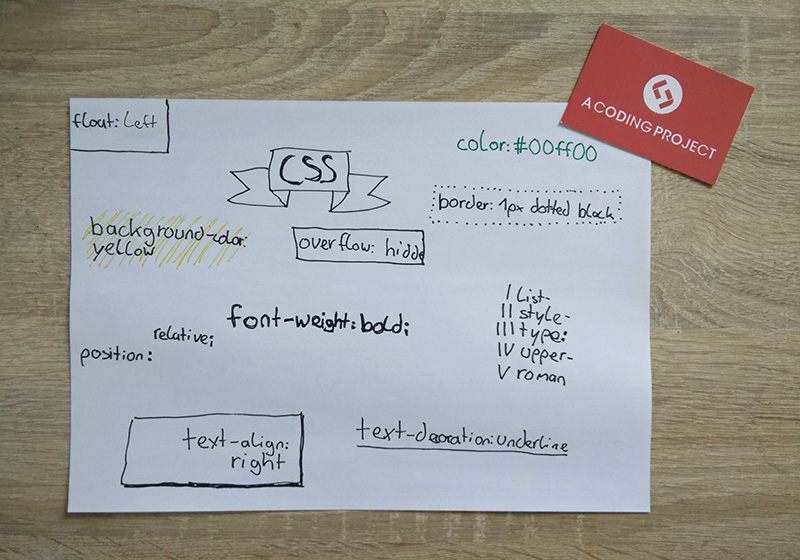 float: left
CSS
color: #00ff00
A CODING PROJECT
border: 1px dotted black
background-color:
yellow
overflow: hidde
font-weight: bold;
I list-
II style-
III type:
IV upper-
V roman
relative;
position:
text-align:
right
text-decoration: underline